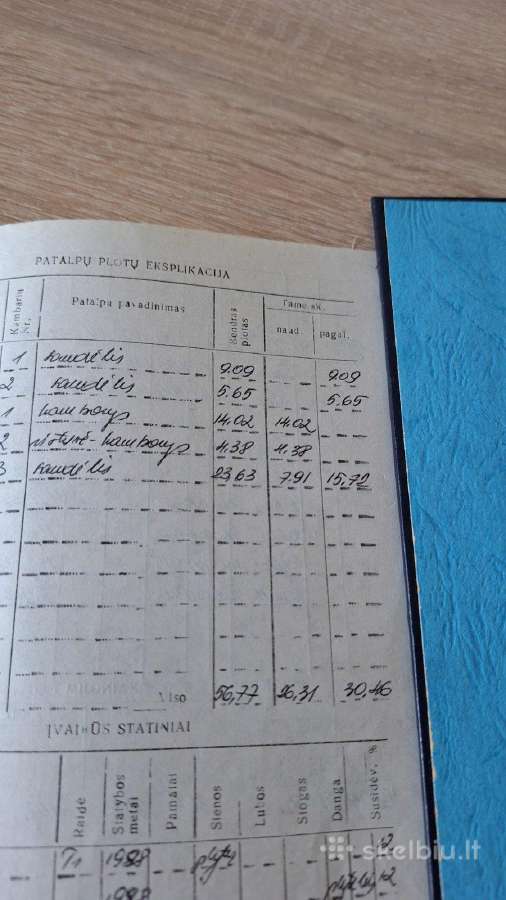 PATALPŲ PLOTŲ EKSPLIKACIJA
Kambario Nr. Patalpų pavadinimas Bendras plotas Tame sk.
naud. pagal.
1 sandėlis 9.09 9.09
2 sandėlis 5.65 5.65
1 kambarys 14.02 14.02
2 virtuvė-kambarys 4.38 4.38
3 sandėlis 23,63 7.91 15,72
Viso 56,77 26,31 30,46
ĮVAIRŪS STATINIAI
Raidė Statybos metai Pamatai Sienos Lubos Stogas Danga Susidėv. %
T1 1988 plytų 12
1988 12
skelbiu.lt